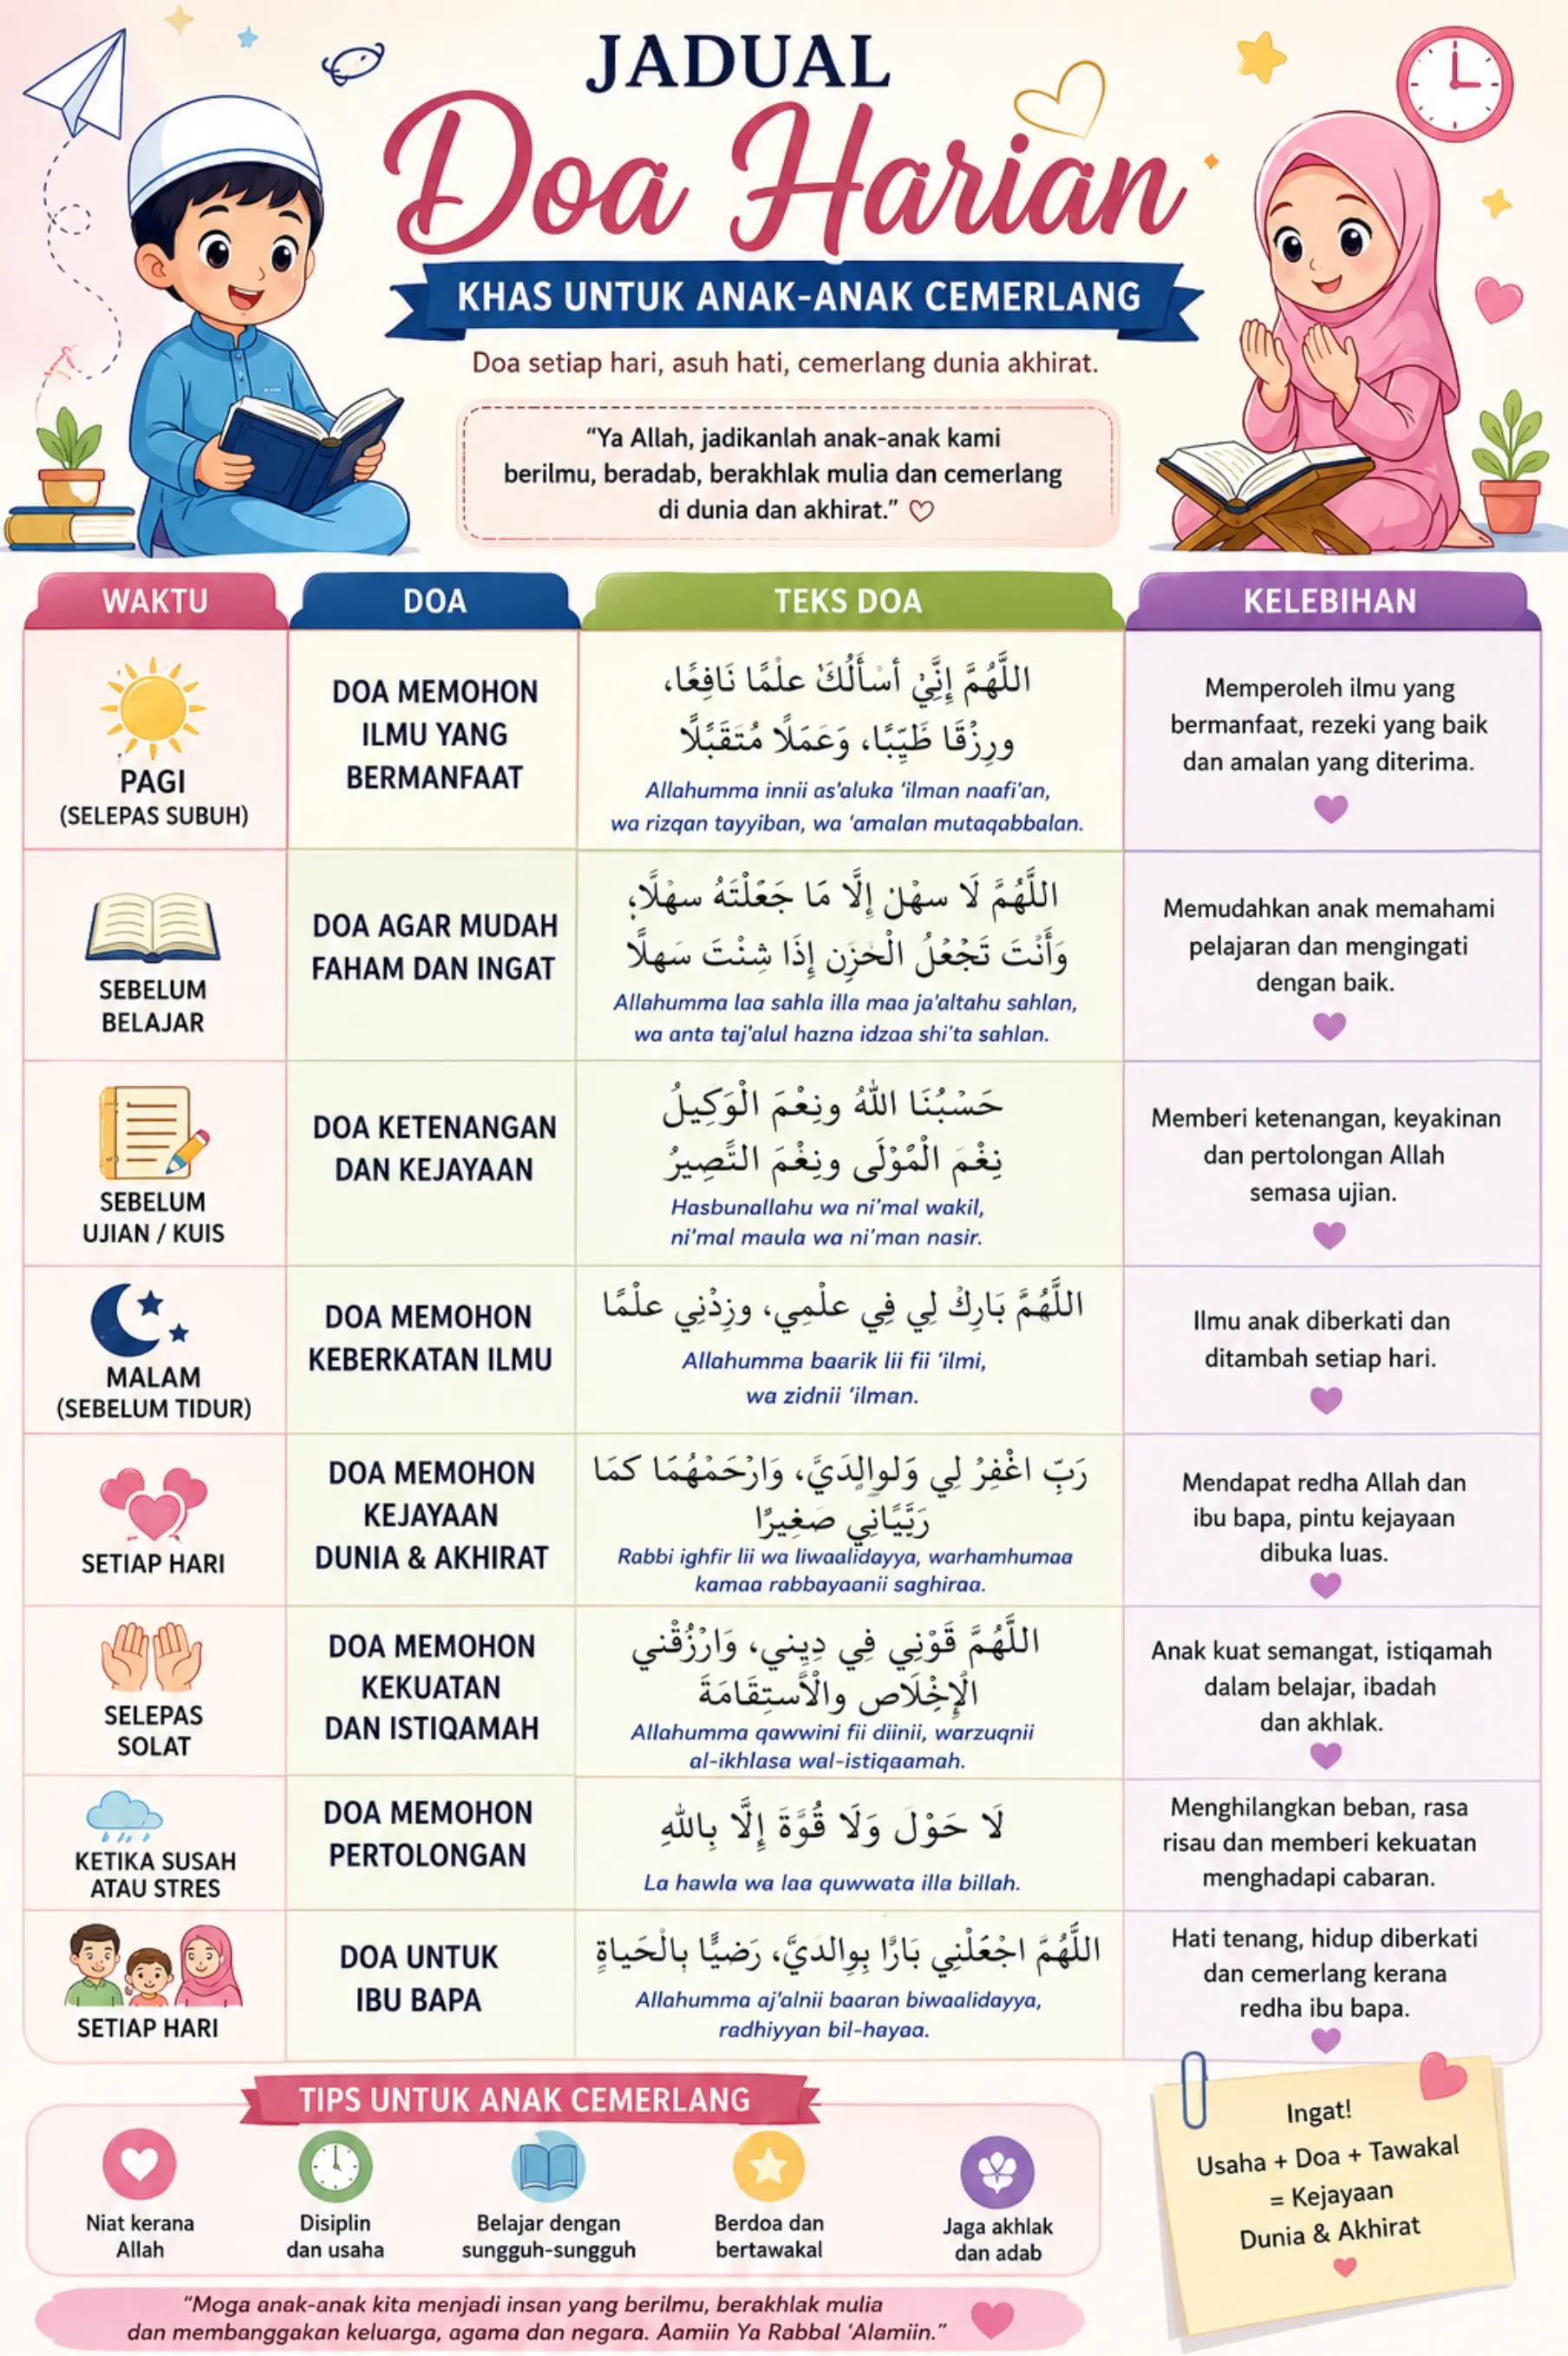 JADUAL
Doa Harian
KHAS UNTUK ANAK-ANAK CEMERLANG
Doa setiap hari, asuh hati, cemerlang dunia akhirat.
“Ya Allah, jadikanlah anak-anak kami
berilmu, beradab, berakhlak mulia dan cemerlang
di dunia dan akhirat.” ♡
WAKTU
DOA
TEKS DOA
KELEBIHAN
PAGI
(SELEPAS SUBUH)
DOA MEMOHON
ILMU YANG
BERMANFAAT
اللَّهُمَّ إِنَّيْ أسْأَلُكَ علْمًا نَافِعًا،
ورِزْقَا طَيِّبًا، وَعَمَلًا مُتَقَبَّلًا
Allahumma innii as’aluka ‘ilman naafi’an,
wa rizqan tayyiban, wa ‘amalan mutaqabbalan.
Memperoleh ilmu yang
bermanfaat, rezeki yang baik
dan amalan yang diterima.
SEBELUM
BELAJAR
DOA AGAR MUDAH
FAHAM DAN INGAT
اللَّهُمَّ لَا سهْلْ إِلَّا مَا جَعَلْتَهُ سهْلًا،
وَأَنْتَ تَجْعَلُ الْحَزَن إِذَا شِئْتَ سَهلًا
Allahumma laa sahla illa maa ja’altahu sahlan,
wa anta taj’alul hazna idzaa shi’ta sahlan.
Memudahkan anak memahami
pelajaran dan mengingati
dengan baik.
SEBELUM
UJIAN / KUIS
DOA KETENANGAN
DAN KEJAYAAN
حَسْبُنَا اللهُ ونِعْمَ الْوَكِيلُ
نِعْمَ الْمَوْلَى ونِعْمَ النَّصِيرُ
Hasbunallahu wa ni’mal wakil,
ni’mal maula wa ni’man nasir.
Memberi ketenangan, keyakinan
dan pertolongan Allah
semasa ujian.
MALAM
(SEBELUM TIDUR)
DOA MEMOHON
KEBERKATAN ILMU
اللَّهُمَّ بَارِكْ لِي فِي علْمِي، وزِدْنِي علْمًا
Allahumma baarik lii fii ‘ilmi,
wa zidnii ‘ilman.
Ilmu anak diberkati dan
ditambah setiap hari.
SETIAP HARI
DOA MEMOHON
KEJAYAAN
DUNIA & AKHIRAT
رَبِّ اغْفِرْ لِي وَلوالِدَيَّ، وَارْحَمْهُمَا كمَا
رَبَّيَانِي صغِيرًا
Rabbi ighfir lii wa liwaalidayya, warhamhumaa
kamaa rabbayaanii saghiraa.
Mendapat redha Allah dan
ibu bapa, pintu kejayaan
dibuka luas.
SELEPAS
SOLAT
DOA MEMOHON
KEKUATAN
DAN ISTIQAMAH
اللَّهُمَّ قَوْنِي فِي دِيِني، وَارْزُقْني
الْإِخْلَاص والْاسْتِقَامَةَ
Allahumma qawwini fii diinii, warzuqnii
al-ikhlasa wal-istiqaamah.
Anak kuat semangat, istiqamah
dalam belajar, ibadah
dan akhlak.
KETIKA SUSAH
ATAU STRES
DOA MEMOHON
PERTOLONGAN
لَا حَوْلَ وَلَا قُوَّةَ إِلَّا بِاللهِ
La hawla wa laa quwwata illa billah.
Menghilangkan beban, rasa
risau dan memberi kekuatan
menghadapi cabaran.
SETIAP HARI
DOA UNTUK
IBU BAPA
اللَّهُمَّ اجْعَلْنِي بَارًّا بِوِالدَيَّ، رَضيًّا بِالْحَياةٍ
Allahumma aj’alnii baaran biwaalidayya,
radhiyyan bil-hayaa.
Hati tenang, hidup diberkati
dan cemerlang kerana
redha ibu bapa.
TIPS UNTUK ANAK CEMERLANG
Niat kerana
Allah
Disiplin
dan usaha
Belajar dengan
sungguh-sungguh
Berdoa dan
bertawakal
Jaga akhlak
dan adab
Ingat!
Usaha + Doa + Tawakal
= Kejayaan
Dunia & Akhirat
“Moga anak-anak kita menjadi insan yang berilmu, berakhlak mulia
dan membanggakan keluarga, agama dan negara. Aamiin Ya Rabbal ‘Alamiin.”